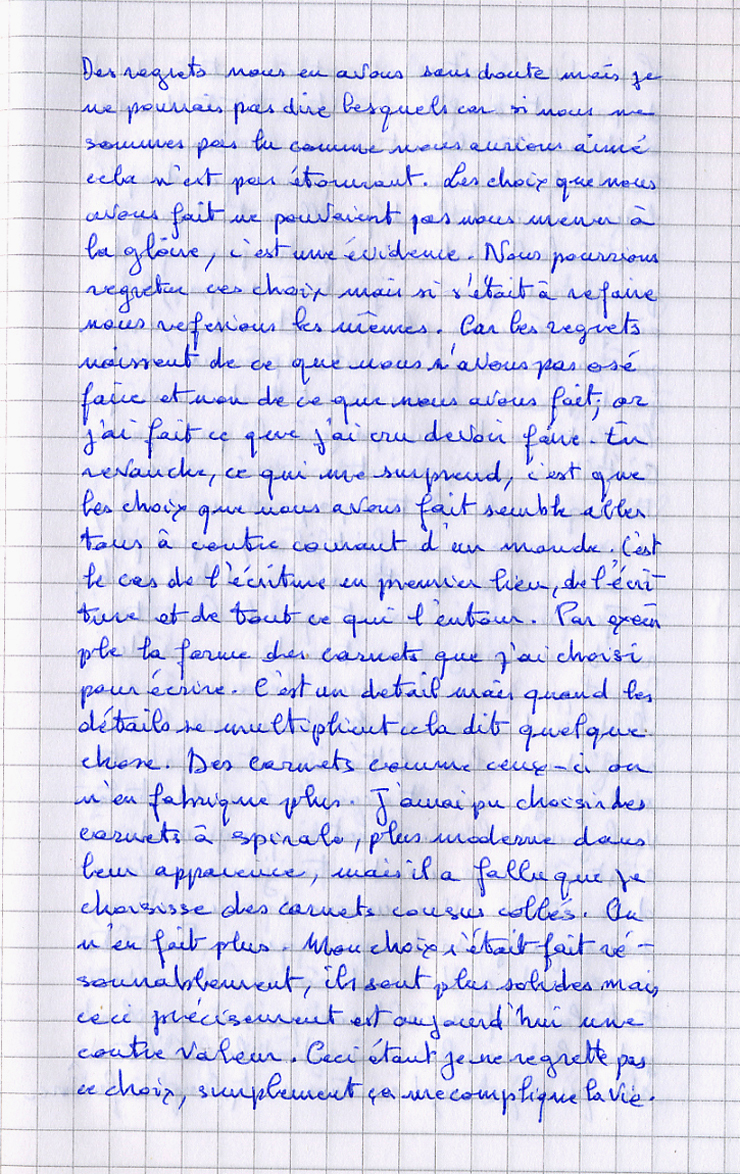 Des regrets nous en avons sans doute mais je
ne pourrais pas dire lesquels car si nous ne
sommes pas lu comme nous aurions aimé
cela n'est pas étonnant. Les choix que nous
avons fait ne pouvaient pas nous mener à
la gloire, c'est une évidence. Nous pourrions
regretter ces choix mais si s'était à refaire
nous referions les mêmes. Car les regrets
naissent de ce que nous n'avons pas osé
faire et non de ce que nous avons fait, or
j'ai fait ce que j'ai cru devoir faire. En
revanche, ce qui me surprend, c'est que
les choix que nous avons fait semble aller
tous à contre courant d'un monde. C'est
le cas de l'écriture en premier lieu, de l'écri
ture et de tout ce qui l'entour. Par exem
ple la forme des carnets que j'ai choisi
pour écrire. C'est un détail mais quand les
détails se multiplient cela dit quelque
chose. Des carnets comme ceux-ci on
n'en fabrique plus. J'aurai pu choisir des
carnets à spirale, plus moderne dans
leur apparence, mais il a fallu que je
choisisse des carnets cousus collés. On
n'en fait plus. Mon choix s'était fait ré-
sonnablement, ils sont plus solides mais
ceci précisement est aujourd'hui une
contre valeur. Ceci étant je ne regrette pas
ce choix, simplement ça me complique la vie.